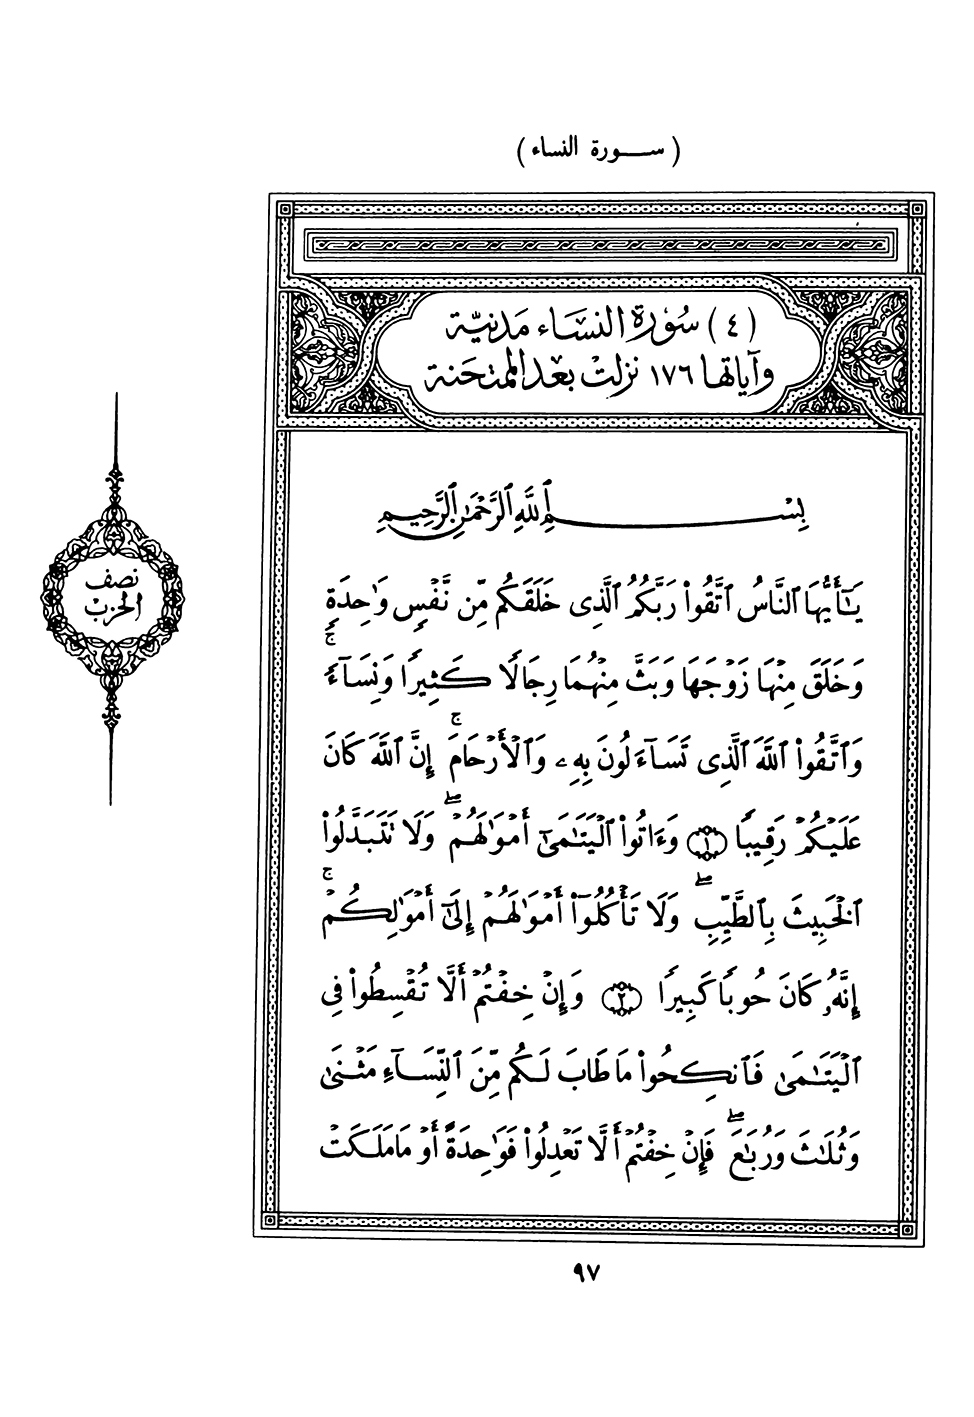 ( ســورة النساء )
(٤) سُورَة النِّسَاء مَدنيَّة
وآياتها ١٧٦ نزلت بعد الممتحنة
بِسْمِ ٱللَّهِ ٱلرَّحْمَٰنِ ٱلرَّحِيمِ
نصف
الحزب
يَـٰٓأَيُّهَا ٱلنَّاسُ ٱتَّقُوا۟ رَبَّكُمُ ٱلَّذِى خَلَقَكُم مِّن نَّفْسٍ وَٰحِدَةٍ
وَخَلَقَ مِنْهَا زَوْجَهَا وَبَثَّ مِنْهُمَا رِجَالًا كَثِيرًا وَنِسَآءً ۚ
وَٱتَّقُوا۟ ٱللَّهَ ٱلَّذِى تَسَآءَلُونَ بِهِۦ وَٱلْأَرْحَامَ ۚ إِنَّ ٱللَّهَ كَانَ
عَلَيْكُمْ رَقِيبًا ١ وَءَاتُوا۟ ٱلْيَتَـٰمَىٰٓ أَمْوَٰلَهُمْ ۖ وَلَا تَتَبَدَّلُوا۟
ٱلْخَبِيثَ بِٱلطَّيِّبِ ۖ وَلَا تَأْكُلُوٓا۟ أَمْوَٰلَهُمْ إِلَىٰٓ أَمْوَٰلِكُمْ ۚ
إِنَّهُۥ كَانَ حُوبًا كَبِيرًا ٢ وَإِنْ خِفْتُمْ أَلَّا تُقْسِطُوا۟ فِى
ٱلْيَتَـٰمَىٰ فَٱنكِحُوا۟ مَا طَابَ لَكُم مِّنَ ٱلنِّسَآءِ مَثْنَىٰ
وَثُلَـٰثَ وَرُبَـٰعَ ۖ فَإِنْ خِفْتُمْ أَلَّا تَعْدِلُوا۟ فَوَٰحِدَةً أَوْ مَا مَلَكَتْ
٩٧